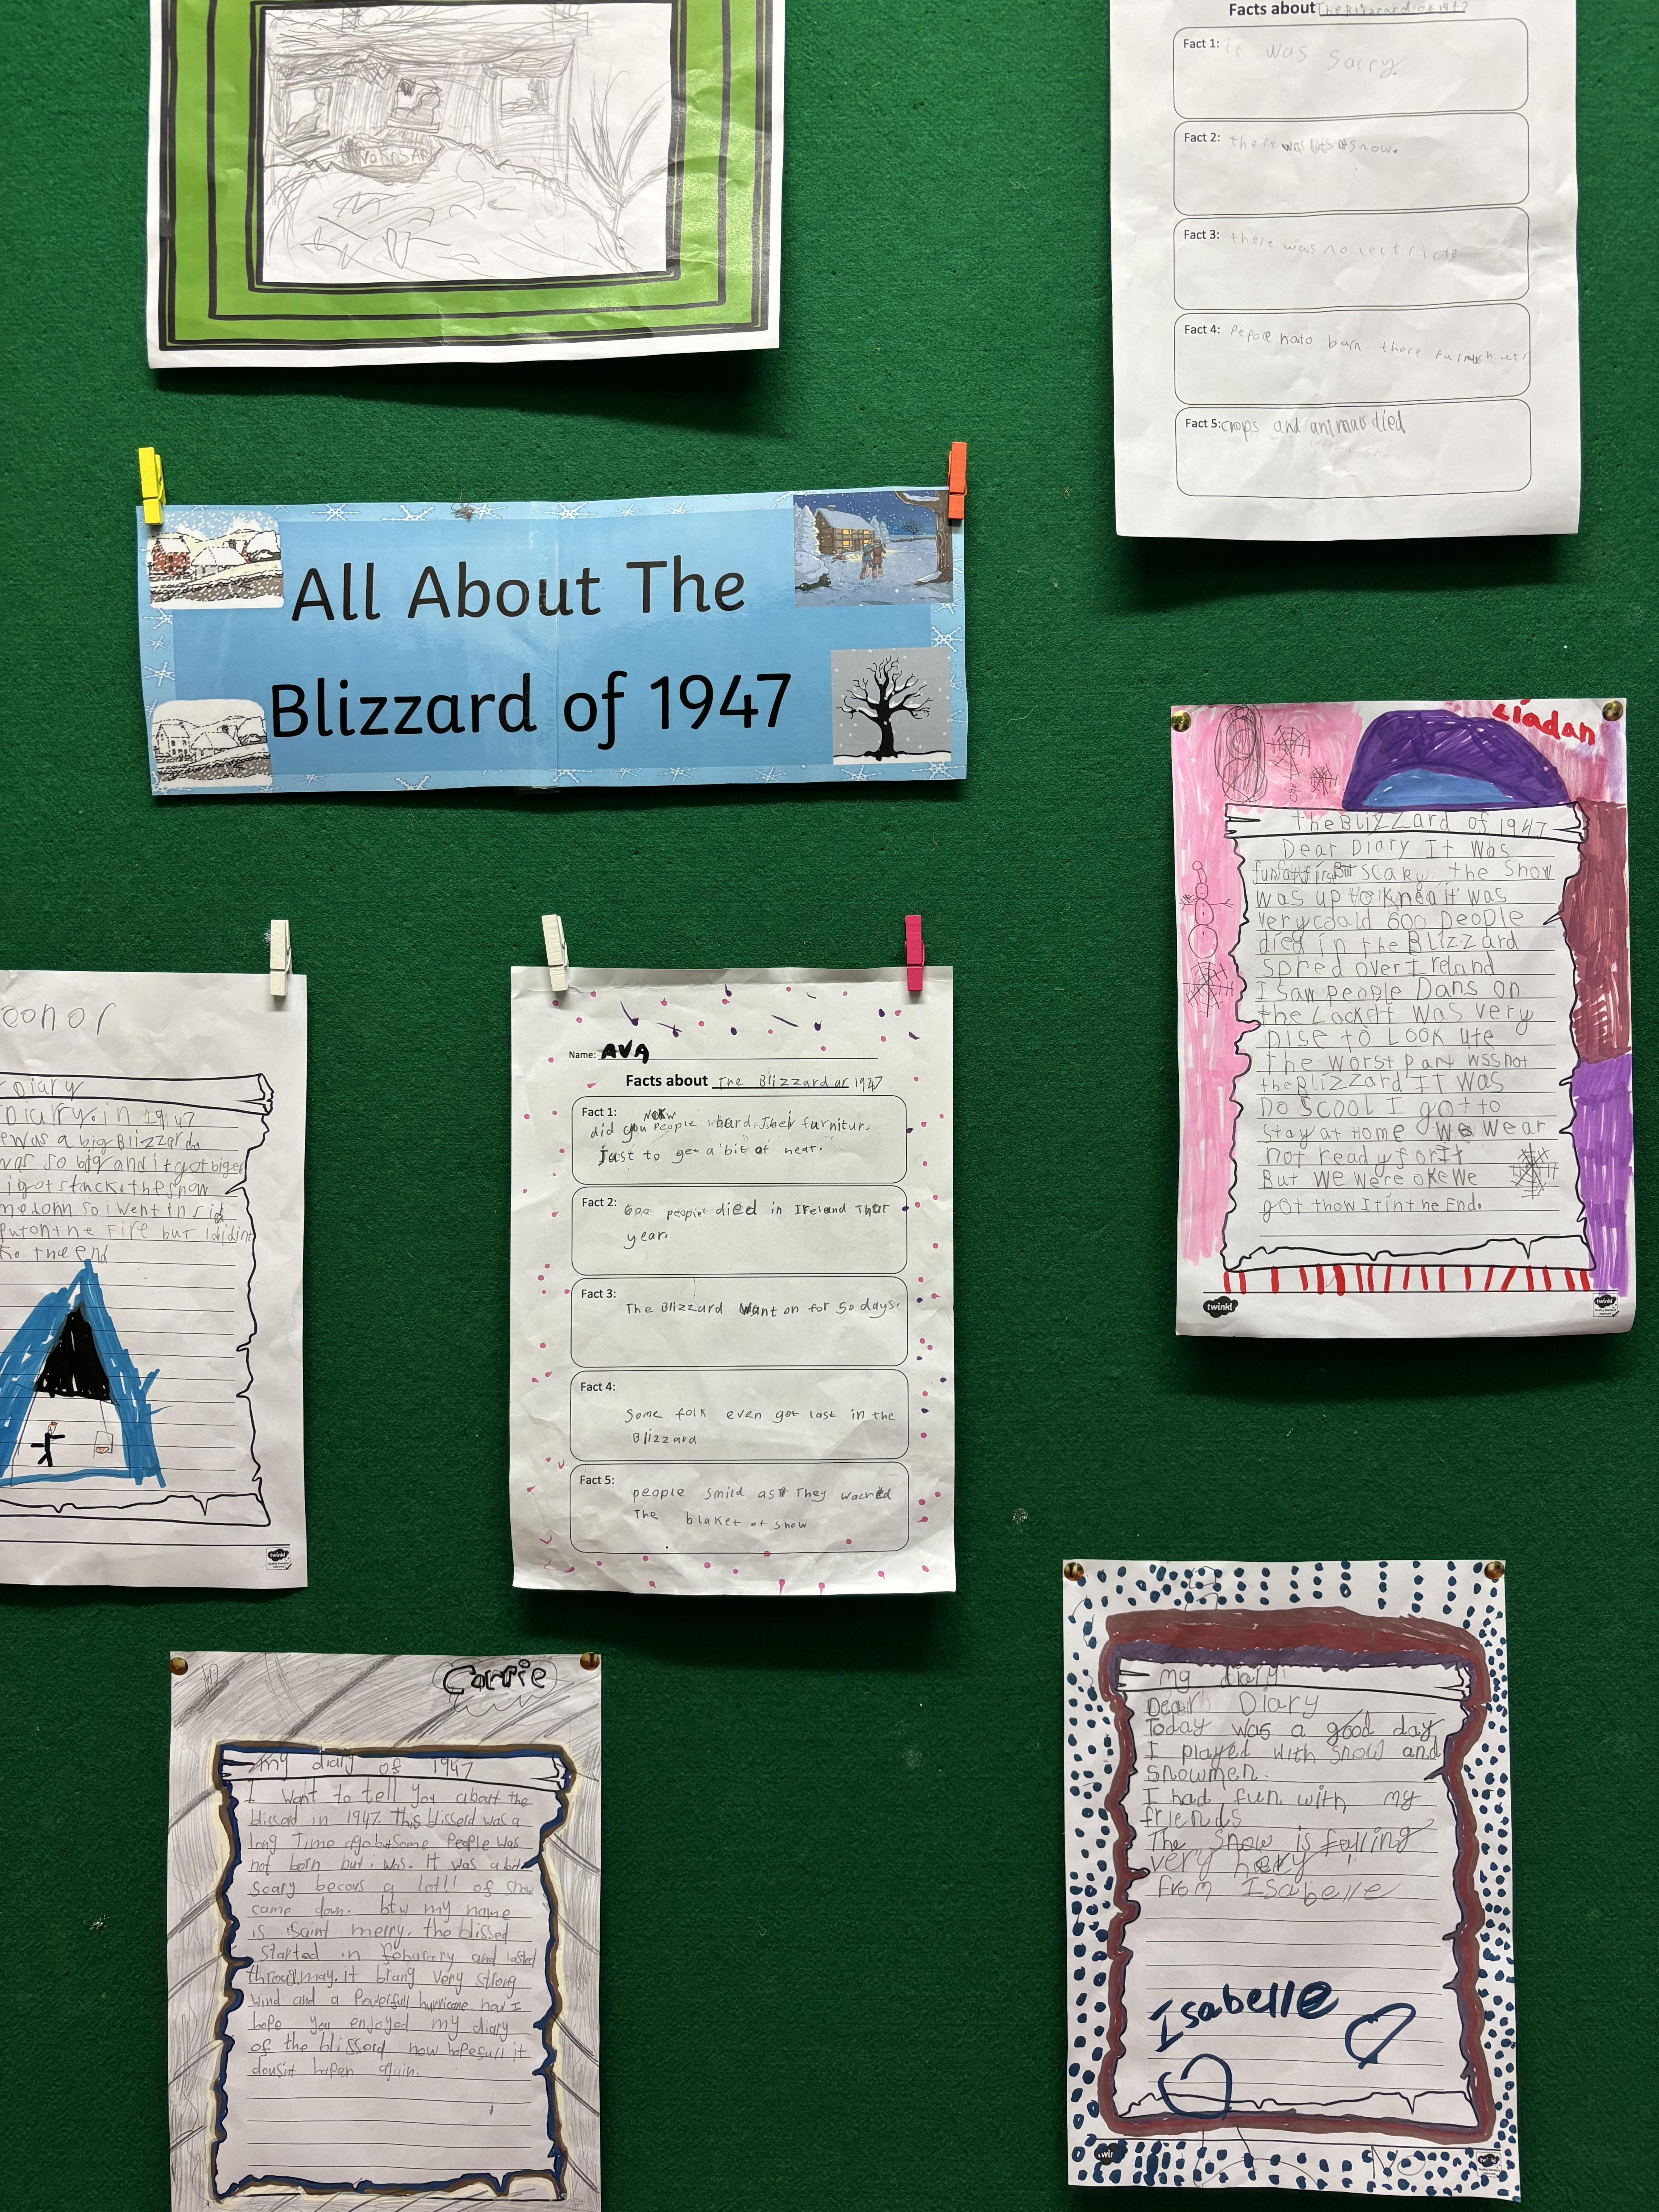 Facts about The Blizzard of 1947
Fact 1: it was sacry
Fact 2: there was lots of snow.
Fact 3: there was no lectricte
Fact 4: Pepole hato burn there
Fact 5: crops and animals died
All About The
Blizzard of 1947
Liadan
the Blizzard of 1947
Dear Diary It was
fun at first But scary the snow
was up to Knea it was
very coald 600 people
died in the Blizzard
spred over Ireland
I saw people Dans on
the Lack it was very
nise to Look ute
the worst part wss not
the Blizzard It was
no scool I got to
stay at Home We wear
not ready for It
But we were oke We
got thow It in the End.
twinkl
twinkl
conor
Diary
Diary. in 1947
was a big Blizzard
was so big and it got biger
i got stuck. the snow
me down so i went in sid
put on the Fire but I didint
the end
twinkl
Name: AVA
Facts about The Blizzard of 1947
Fact 1: did you NOKW people burd their furnitur.
just to get a bit of heat.
Fact 2: 600 people died in Ireland That
year.
Fact 3: The Blizzard want on for 50 days.
Fact 4:
Some folk even got last in the
Blizzard
Fact 5: people smild as They wached
The blaket of snow
Corrie
my diary of 1947
I want to tell you about the
blissed in 1947. This blisserd was a
long Time ago but some people was
not born but i was. It was a bit
scary becous a lot!! of snow
came down. btw my name
is saint merry. the blissed
started in feburary and lasted
throu may. it brang very strong
wind and a powerfull hurricane now I
hope you enjoyed my diary
of the blisserd now hopefull it
dousint hapen again.
my diary
Dear Diary
Today was a good day
I played with snow and
snowmen.
I had fun with my
friends
The snow is falling
very hevy
from Isabelle
Isabelle